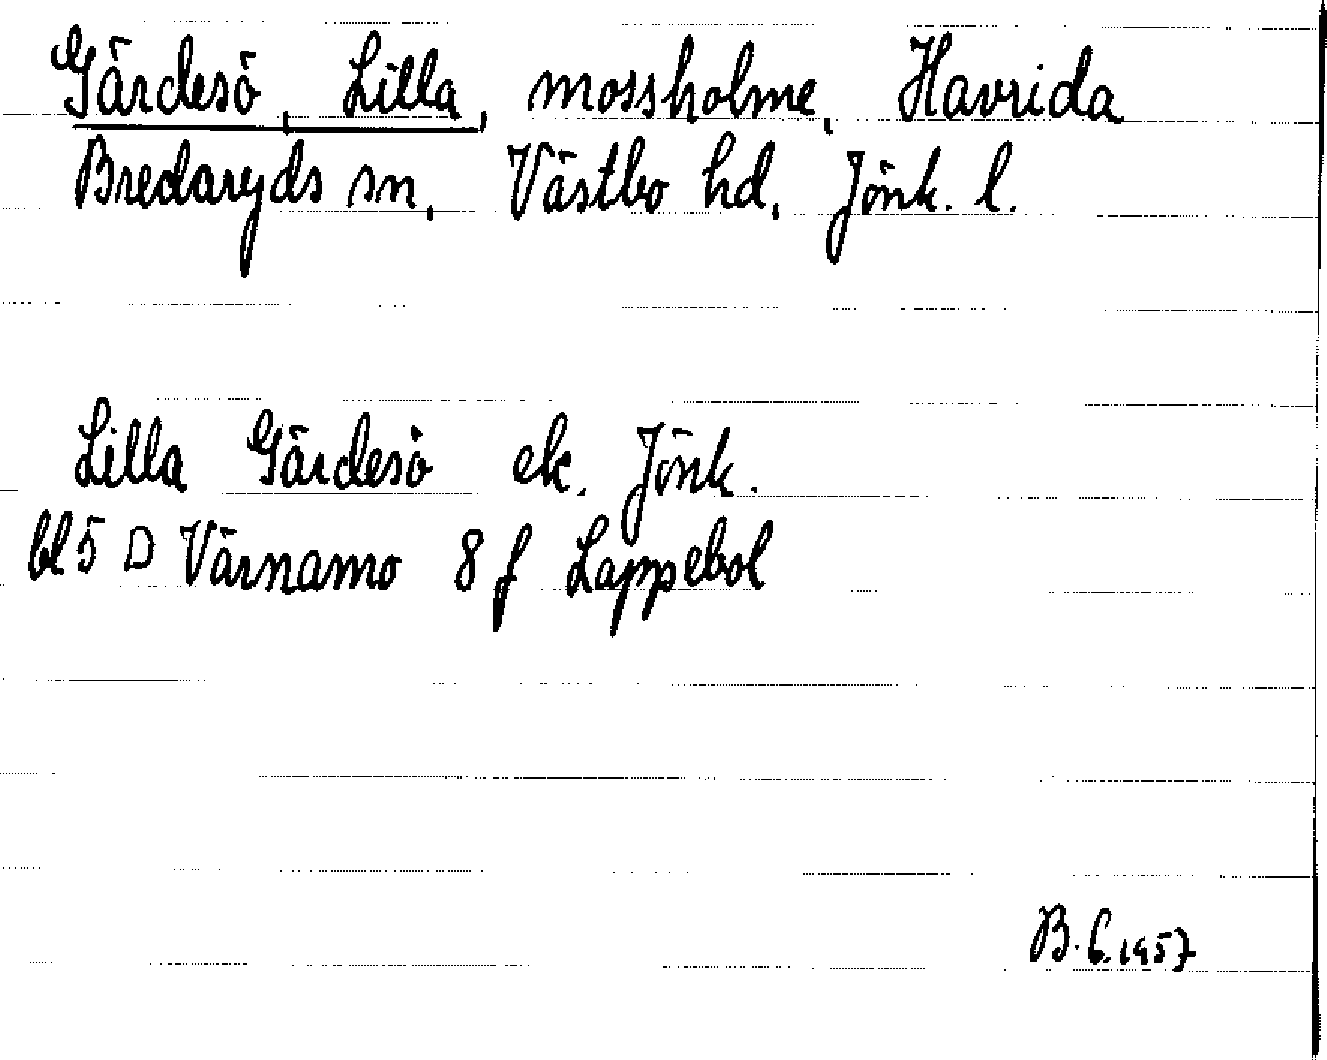 Gärdesö, Lilla, mossholme, Havrida
Bredaryds sn, Västbo hd, Jönk. l.
Lilla Gärdesö ek. Jönk.
bl 5 D Värnamo 8 f Lappebol
B. 6. 1957